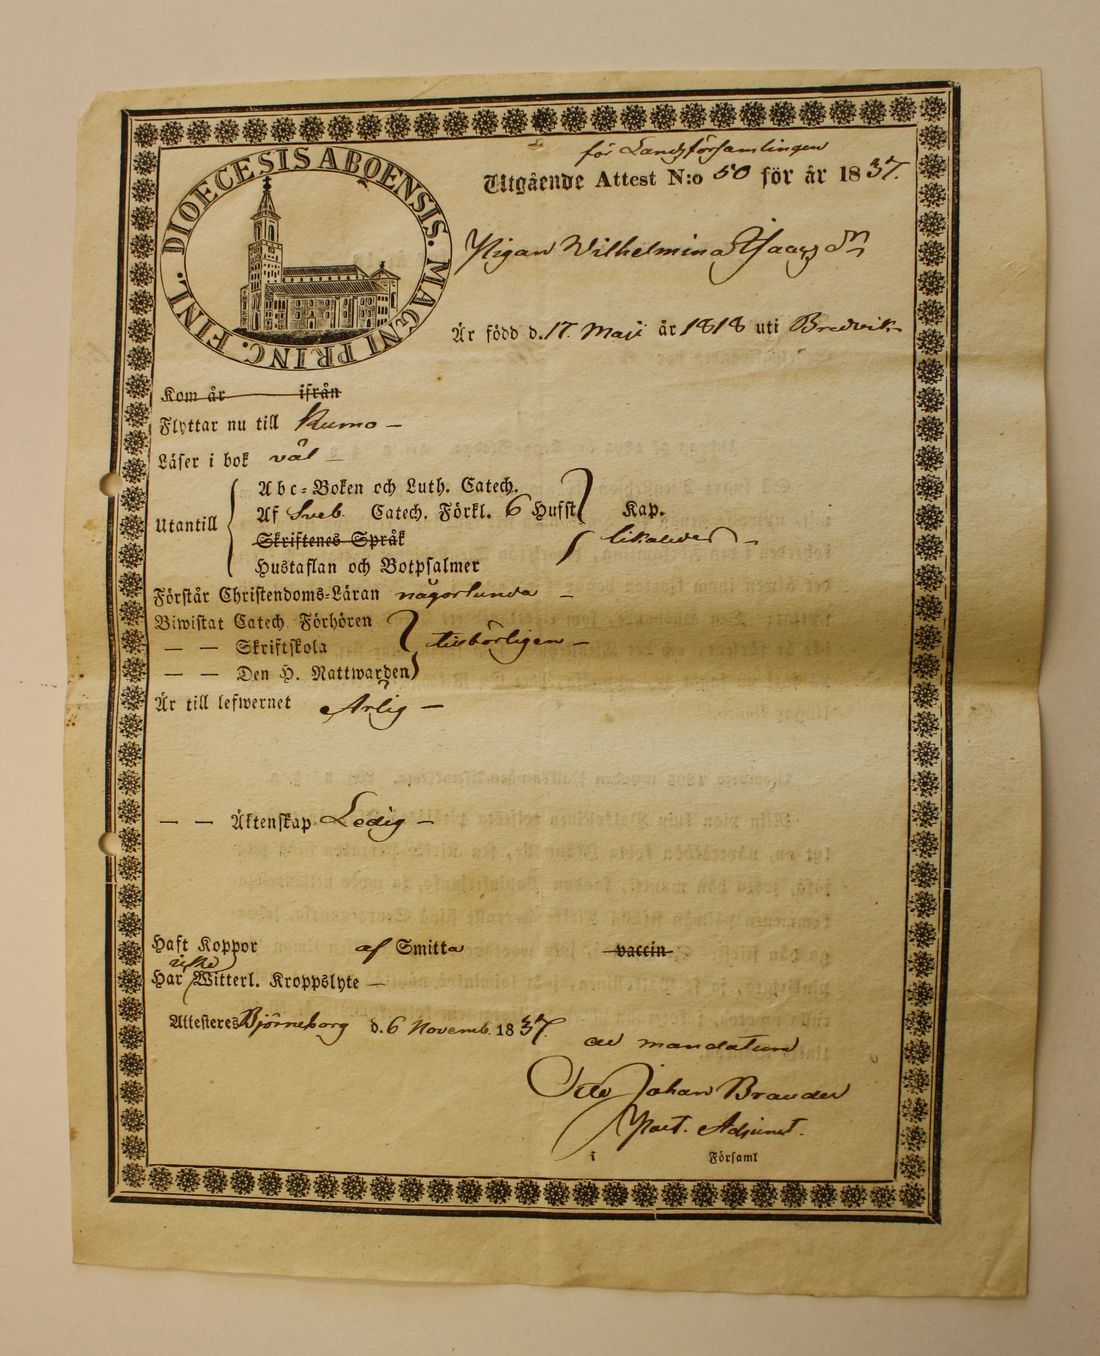 DIOECESIS ABOENSIS. MAGNI PRINC. FINL.
för Landsförsamlingen
Utgående Attest N:o 50 för år 1837.
Pigan Wilhelmina
Är född d. 17. Maji år 1818 uti Bredvik
Kom år ifrån
Flyttar nu till Kumo –
Läser i bok väl –
Utantill
Abc-Boken och Luth. Catech.
Af Sveb. Catech. Förkl. 6 Hufst Kap.
Skriftenes Språk likaledes –
Hustaflan och Botpsalmer
Förstår Christendoms-Läran någorlunda –
Biwistat Catech. Förhören
— — Skriftskola tillbörligen –
— — Den H. Nattwarden
Är till lefwernet Ärlig –
— — Äktenskap Ledig –
Haft Koppor af Smitta vaccin
icke
Har Witterl. Kroppslyte –
Attesteres Björneborg d. 6 Novemb. 1837.
ad mandatum
Johan Brander
Past. Adjunct.
i Församl